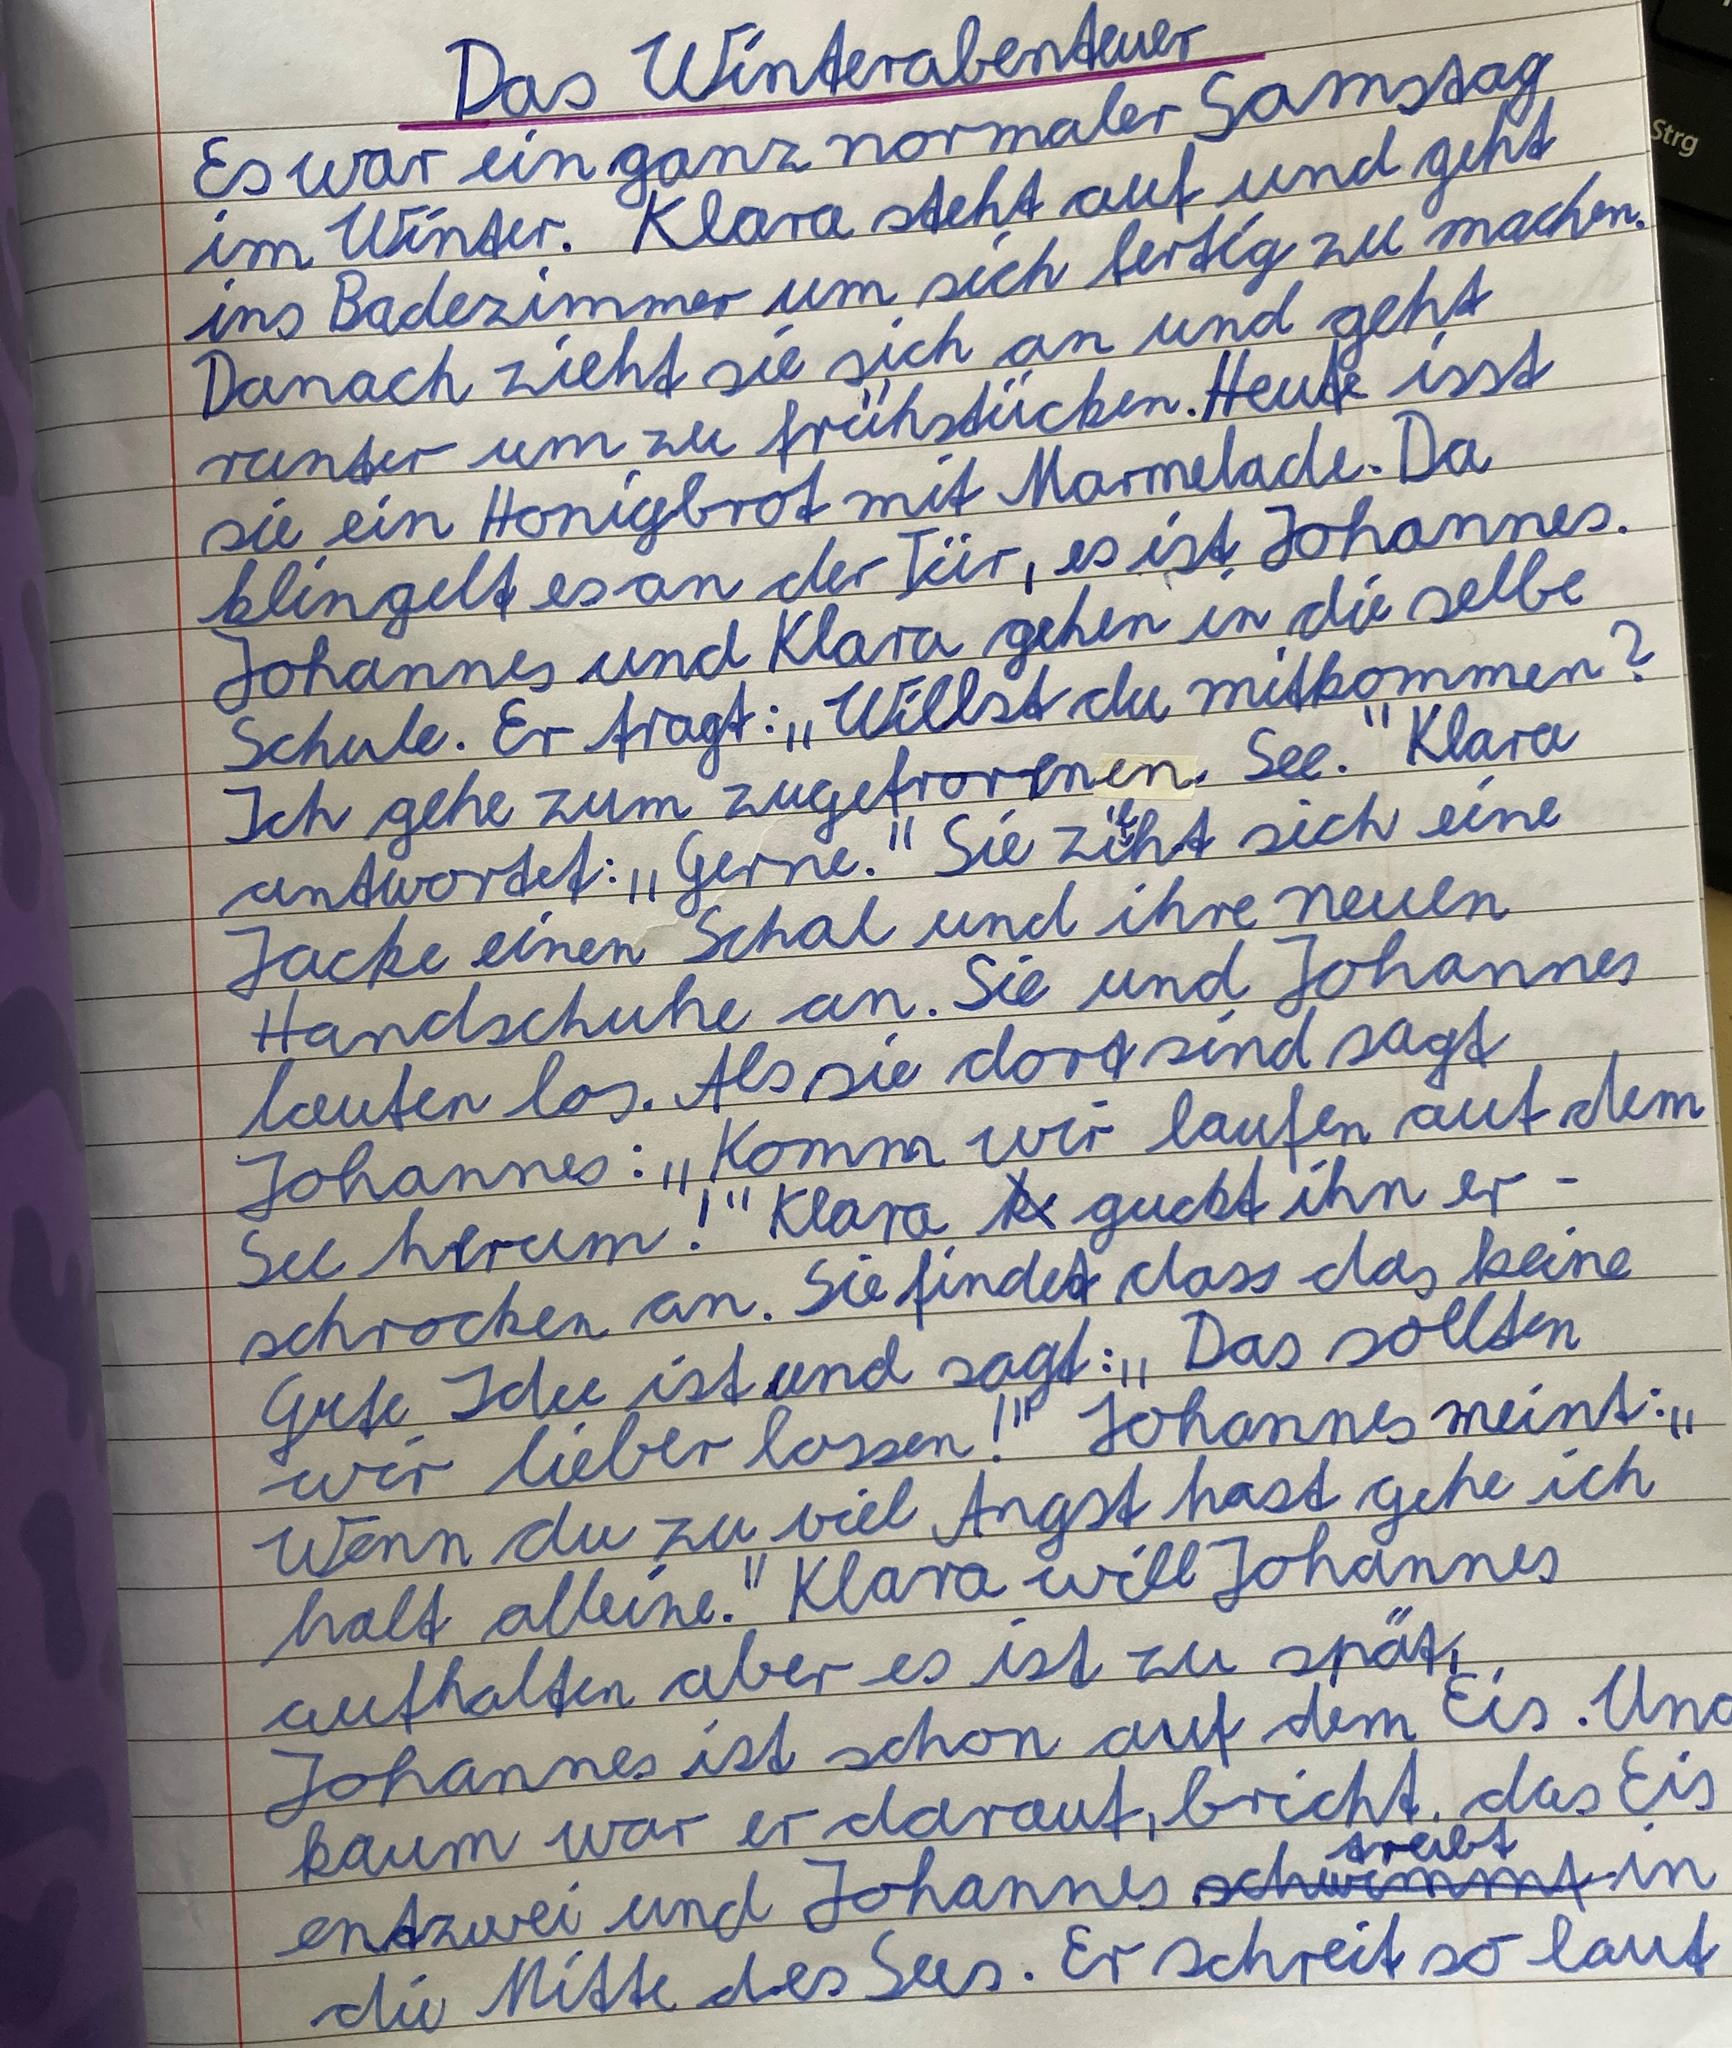 Das Winterabenteuer
Es war ein ganz normaler Samstag
im Winter. Klara steht auf und geht
ins Badezimmer um sich fertig zu machen.
Danach zieht sie sich an und geht
runter um zu frühstücken. Heute isst
sie ein Honigbrot mit Marmelade. Da
klingelt es an der Tür, es ist Johannes.
Johannes und Klara gehen in die selbe
Schule. Er fragt: „Willst du mitkommen?
Ich gehe zum zugefrorenen See." Klara
antwortet: „Gerne." Sie zieht sich eine
Jacke einen Schal und ihre neuen
Handschuhe an. Sie und Johannes
laufen los. Als sie dort sind sagt
Johannes: „Komm wir laufen auf dem
See herum!" Klara guckt ihn er-
schrocken an. Sie findet dass das keine
Gute Idee ist und sagt: „Das sollten
wir lieber lassen!" Johannes meint: „
Wenn du zu viel Angst hast gehe ich
halt alleine." Klara will Johannes
aufhalten aber es ist zu spät,
Johannes ist schon auf dem Eis. Und
kaum war er darauf, bricht das Eis
entzwei und Johannes schwimmt treibt in
die Mitte des Sees. Er schreit so laut
Strg